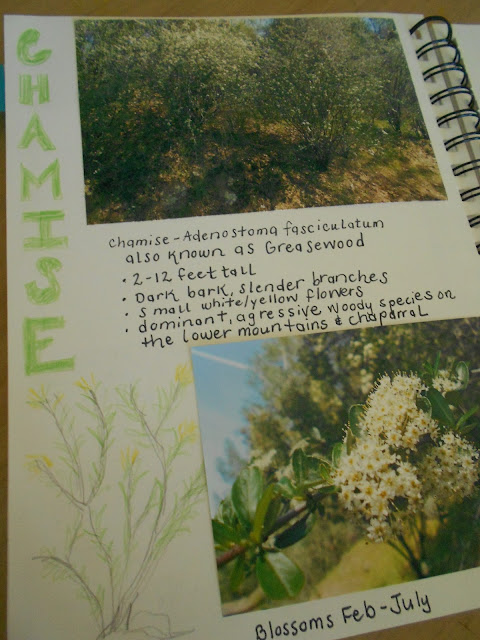 CHAMISE
Chamise - Adenostoma fasciculatum
also known as Greasewood
• 2-12 feet tall
• Dark bark, slender branches
• small white/yellow flowers
• dominant, agressive woody species on
the lower mountains & chaparral
Blossoms Feb-July